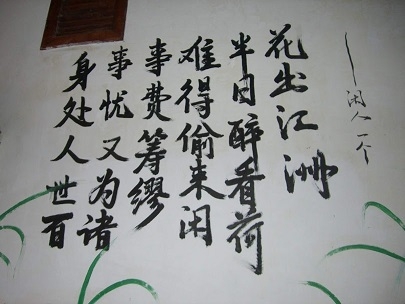 身处人世百
事忧又为诸
事费筹缪
难得偷来闲
半日醉看荷
花出江洲
——闲人一个